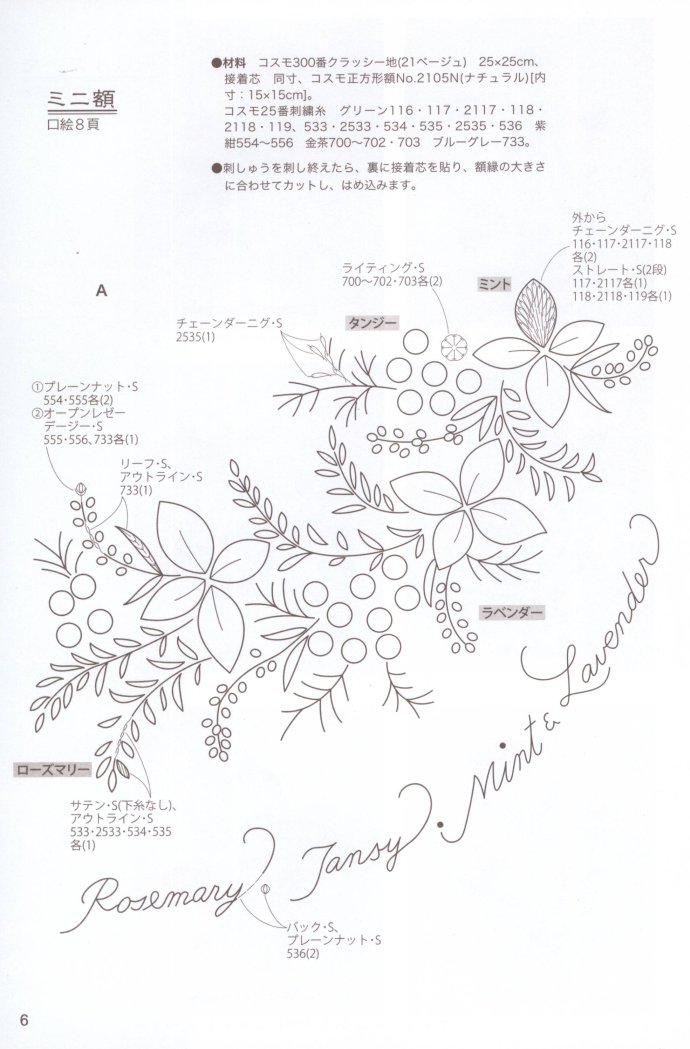 ミニ額
口絵8頁
●材料　コスモ300番クラッシー地(21ベージュ)　25×25cm、
接着芯　同寸、コスモ正方形額No.2105N(ナチュラル)[内
寸：15×15cm]。
コスモ25番刺繍糸　グリーン116・117・2117・118・
2118・119、533・2533・534・535・2535・536　紫
紺554〜556　金茶700〜702・703　ブルーグレー733。
●刺しゅうを刺し終えたら、裏に接着芯を貼り、額縁の大きさ
に合わせてカットし、はめ込みます。
A
外から
チェーンダーニグ・S
116・117・2117・118
各(2)
ストレート・S(2段)
117・2117各(1)
118・2118・119各(1)
ライティング・S
700〜702・703各(2)
ミント
タンジー
チェーンダーニグ・S
2535(1)
①プレーンナット・S
554・555各(2)
②オープンレゼー
デージー・S
555・556、733各(1)
リーフ・S、
アウトライン・S
733(1)
ラベンダー
ローズマリー
サテン・S(下糸なし)、
アウトライン・S
533・2533・534・535
各(1)
Rosemary Tansy・Mint & Lavender
バック・S、
プレーンナット・S
536(2)
6